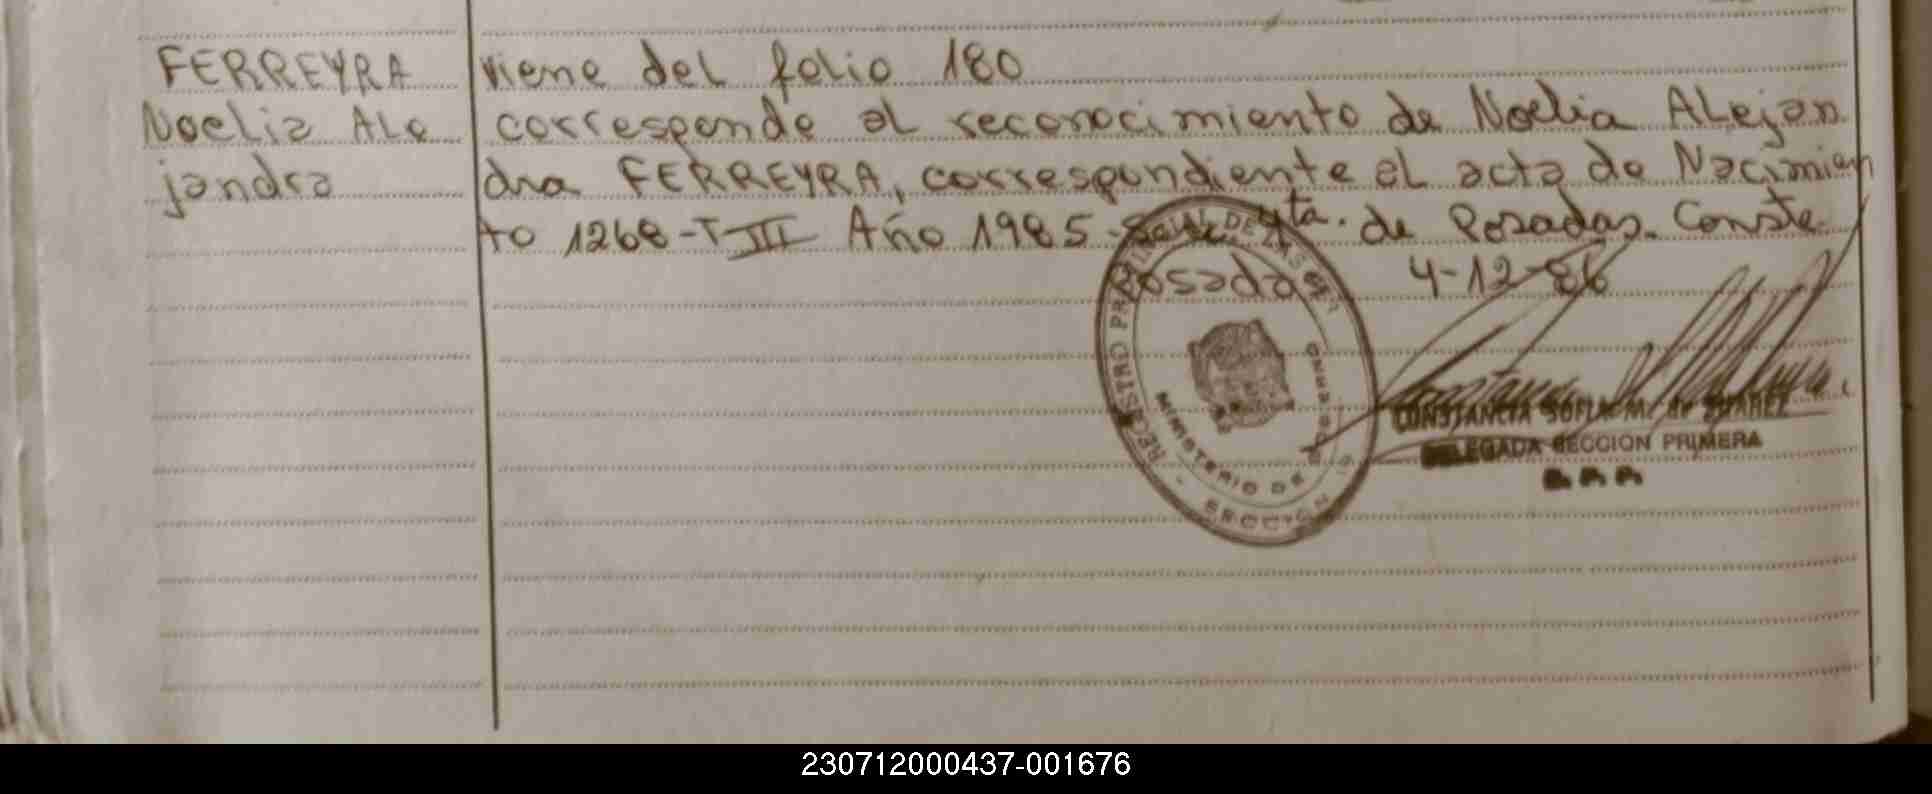 FERREYRA
Noelia Ale
jandra
viene del folio 180
corresponde al reconocimiento de Noelia Alejan
dra FERREYRA, correspondiente al acta de Nacimien
to 1268-T III Año 1985- 4ta. de Posadas. Conste.
Posadas 4-12-86
REGISTRO PROVINCIAL DE LAS PER
MINISTERIO DE GOBIERNO
SECCION
CONSTANCIA SOFIA M. de SUAREZ
DELEGADA SECCION PRIMERA
230712000437-001676